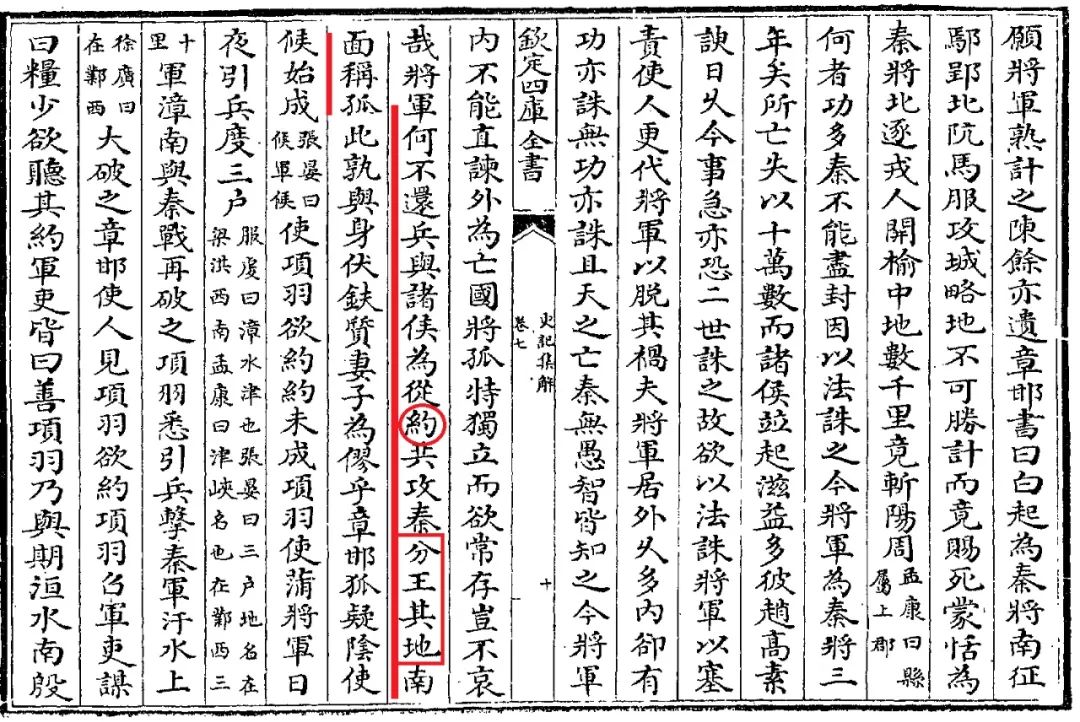 願將軍熟計之陳餘亦遺章邯書曰白起為秦將南征
鄢郢北阬馬服攻城略地不可勝計而竟賜死蒙恬為
秦將北逐戎人開榆中地數千里竟斬陽周孟康曰縣屬上郡
何者功多秦不能盡封因以法誅之今將軍為秦將三
年矣所亡失以十萬數而諸侯並起滋益多彼趙高素
諛日久今事急亦恐二世誅之故欲以法誅將軍以塞
責使人更代將軍以脫其禍夫將軍居外久多內郤有
功亦誅無功亦誅且天之亡秦無愚智皆知之今將軍
欽定四庫全書
史記集解
卷七
十
內不能直諫外為亡國將孤特獨立而欲常存豈不哀
哉將軍何不還兵與諸侯為從約共攻秦分王其地南
面稱孤此孰與身伏鈇質妻子為僇乎章邯狐疑陰使
候始成張晏曰候軍候使項羽欲約約未成項羽使蒲將軍日
夜引兵度三户服虔曰漳水津也張晏曰三户地名在梁淇西南孟康曰津峽名也在鄴西三
十里軍漳南與秦戰再破之項羽悉引兵擊秦軍汙水上
徐廣曰在鄴西大破之章邯使人見項羽欲約項羽召軍吏謀
曰糧少欲聽其約軍吏皆曰善項羽乃與期洹水南殷